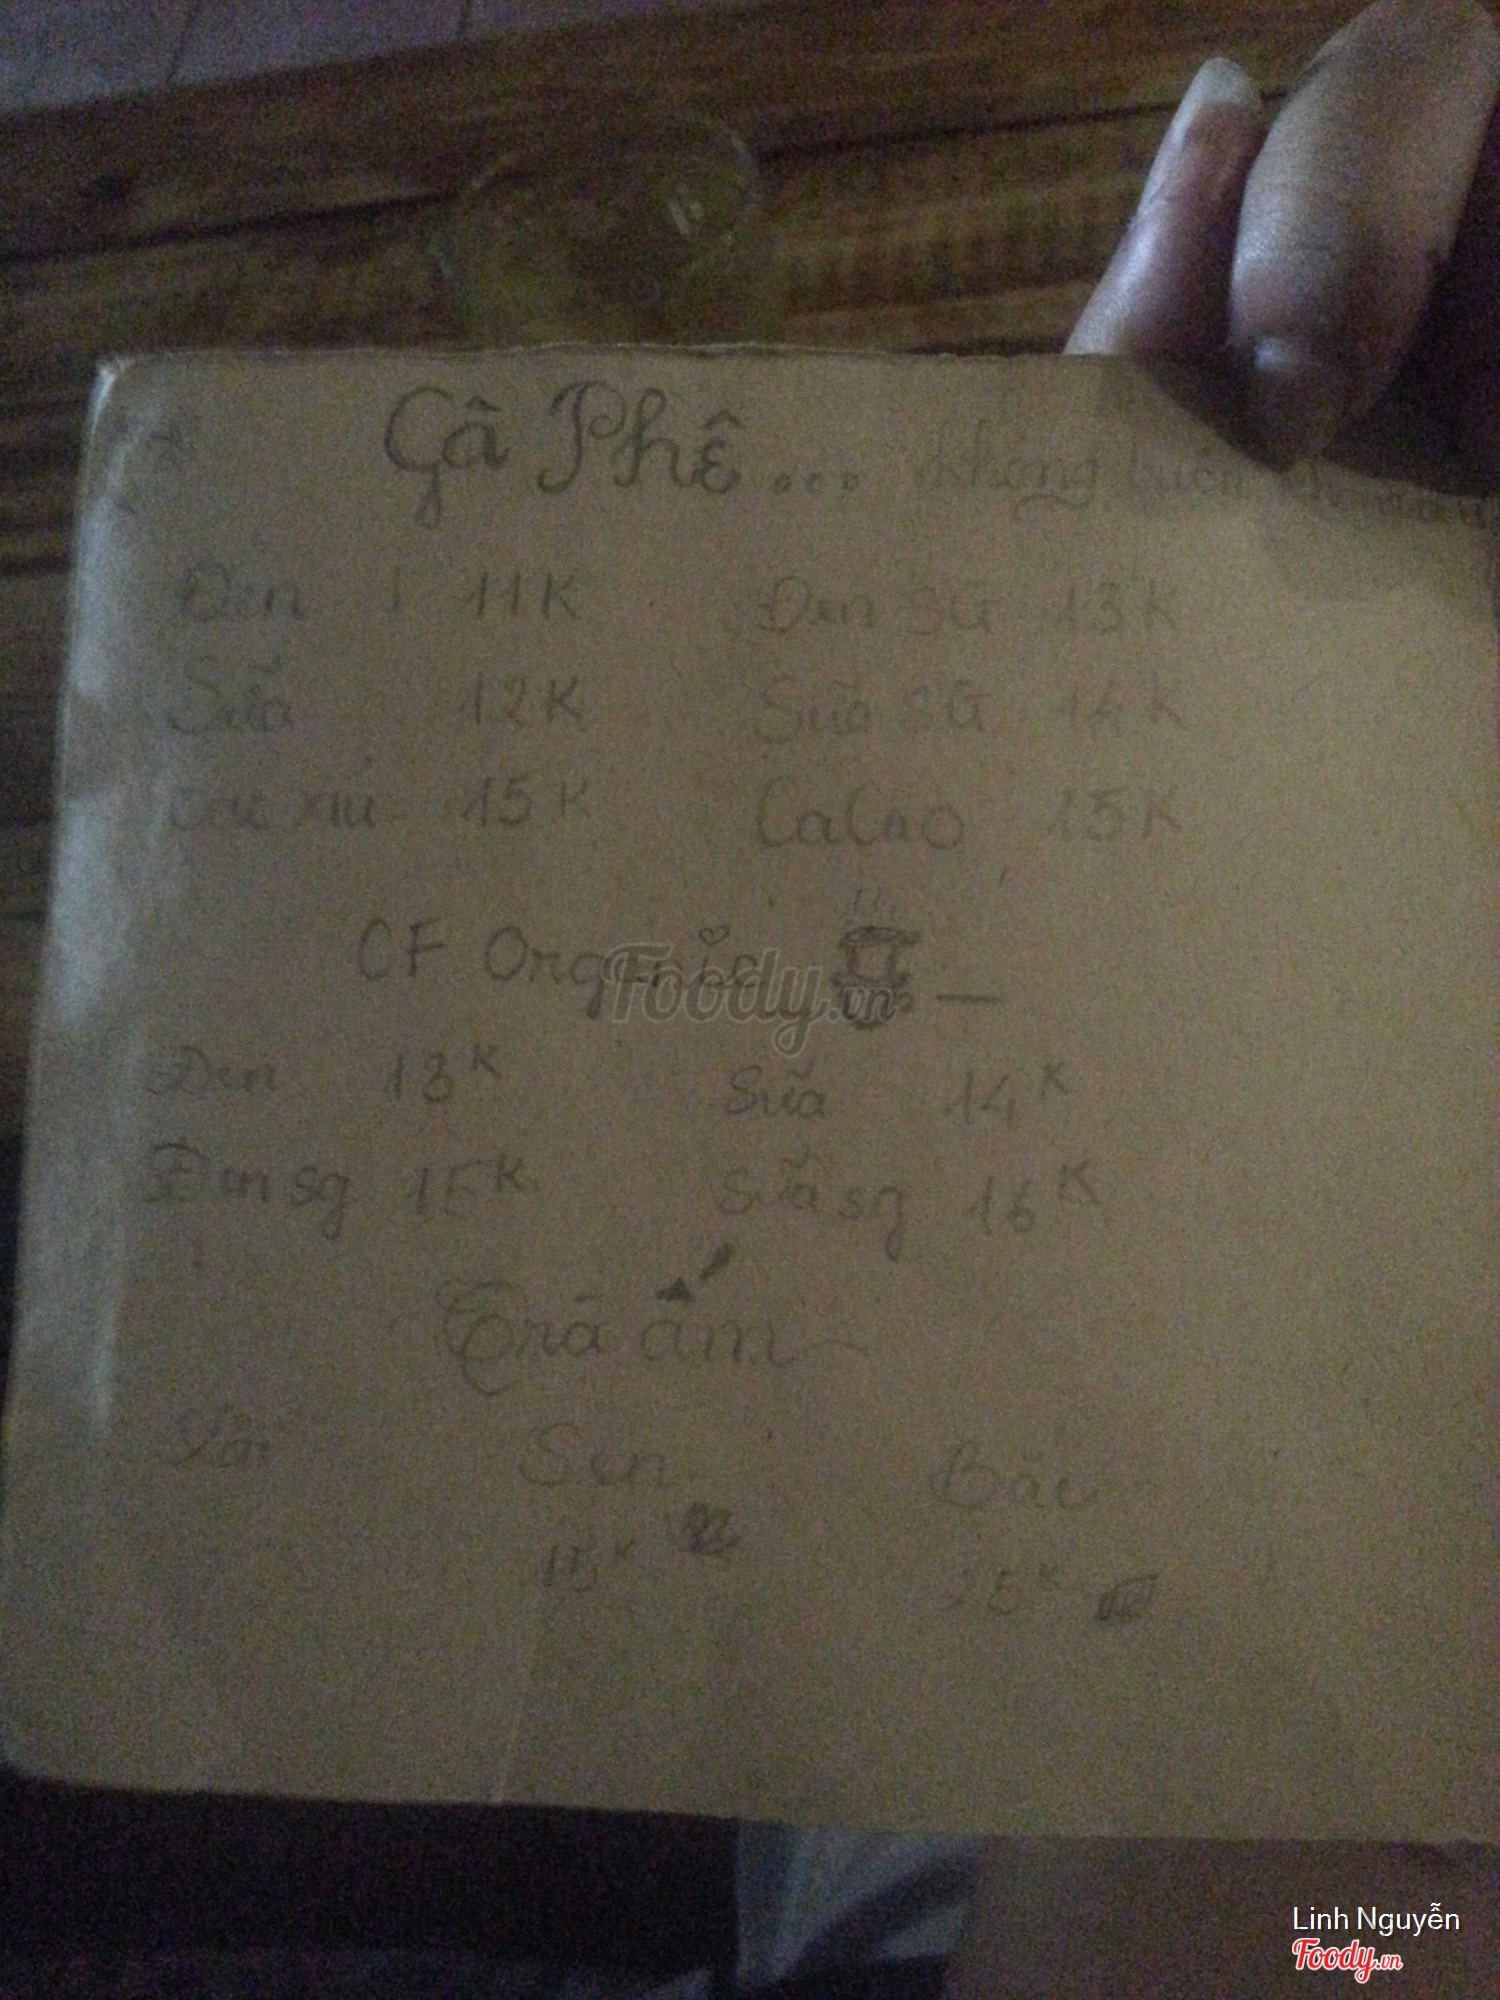 Cà Phê... không buồn
Đen 11K Đen SG 13K
Sữa 12K Sữa SG 14K
xỉu 15K CaCao 15K
CF Organic
Đen 13K Sữa 14K
Đen sg 15K Sữa sg 16K
Trà ấm
Sen Bắc
15K 25K
Foody.vn
Linh Nguyễn
Foody.vn